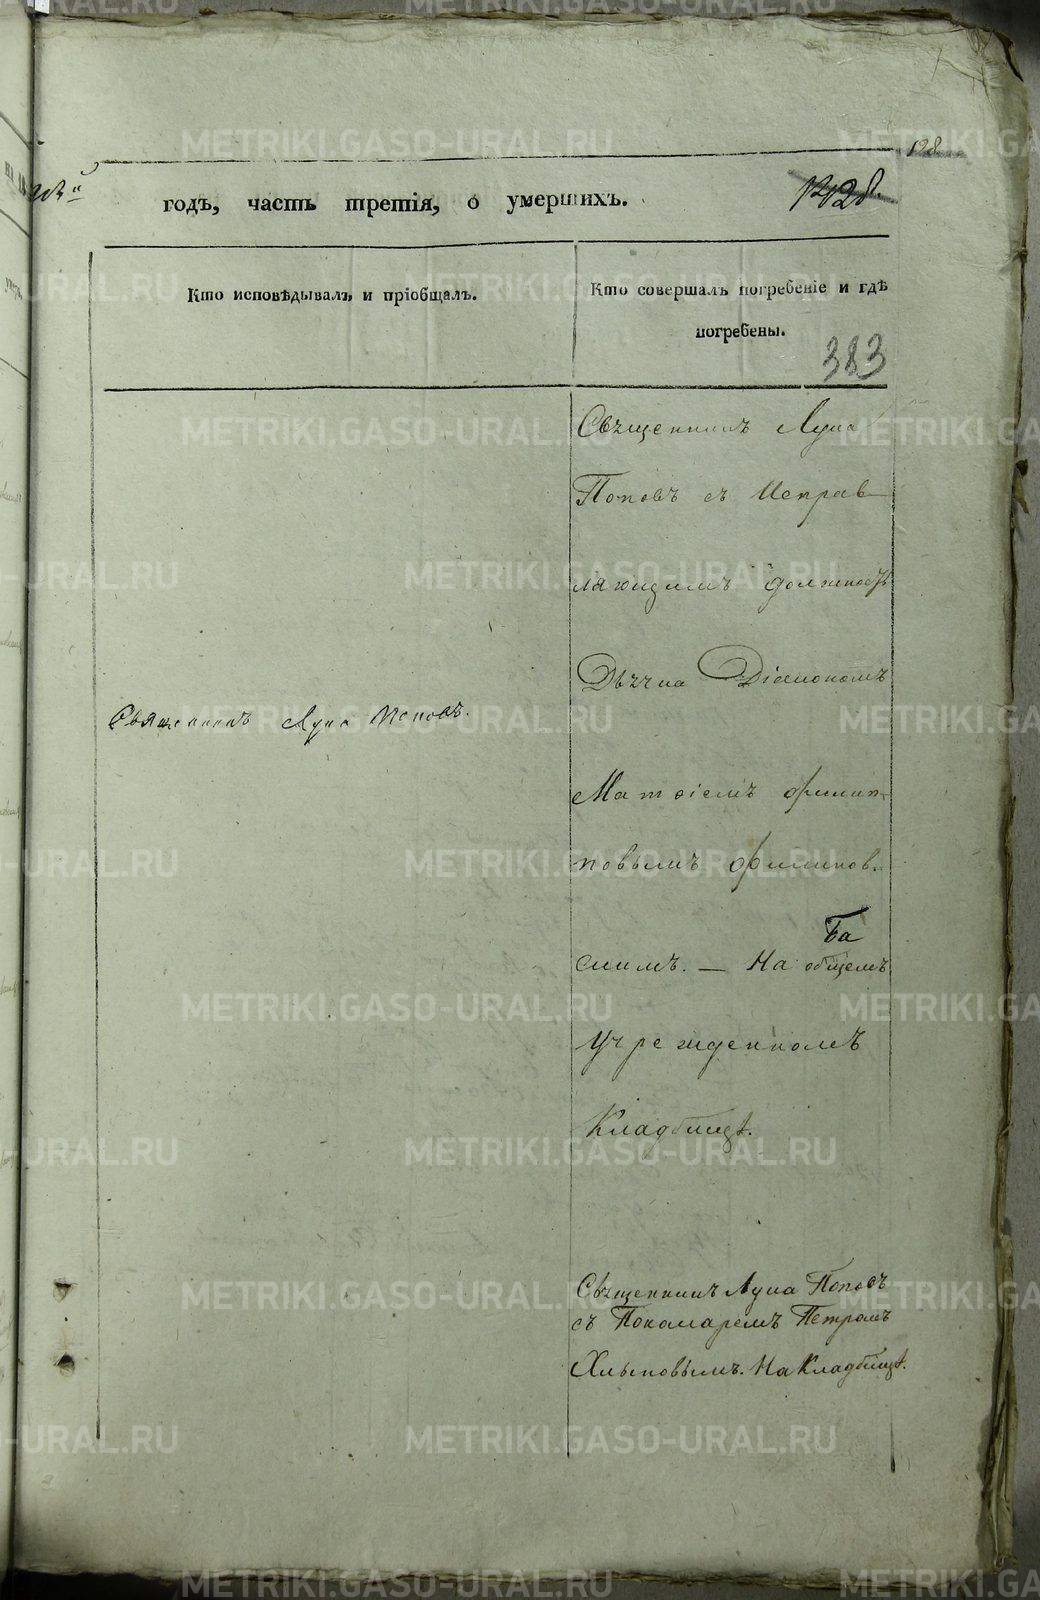 128
годъ, часть третія, о умершихъ.
1028.
Кто исповѣдывалъ и пріобщалъ.
Кто совершалъ погребеніе и гдѣ
погребены.
383
Священникъ Лука
Поповъ съ Исправ
ляющимъ должность
Дьячка Діакономъ
Священникъ Лука Поповъ.
Матѳіемъ Филип
повымъ Филипов
Ба
скимъ. — На общемъ
Учрежденномъ
Кладбищѣ.
Священникъ Лука Поповъ
съ Пономаремъ Петромъ
Хлыновымъ. На Кладбищѣ.
METRIKI.GASO-URAL.RU